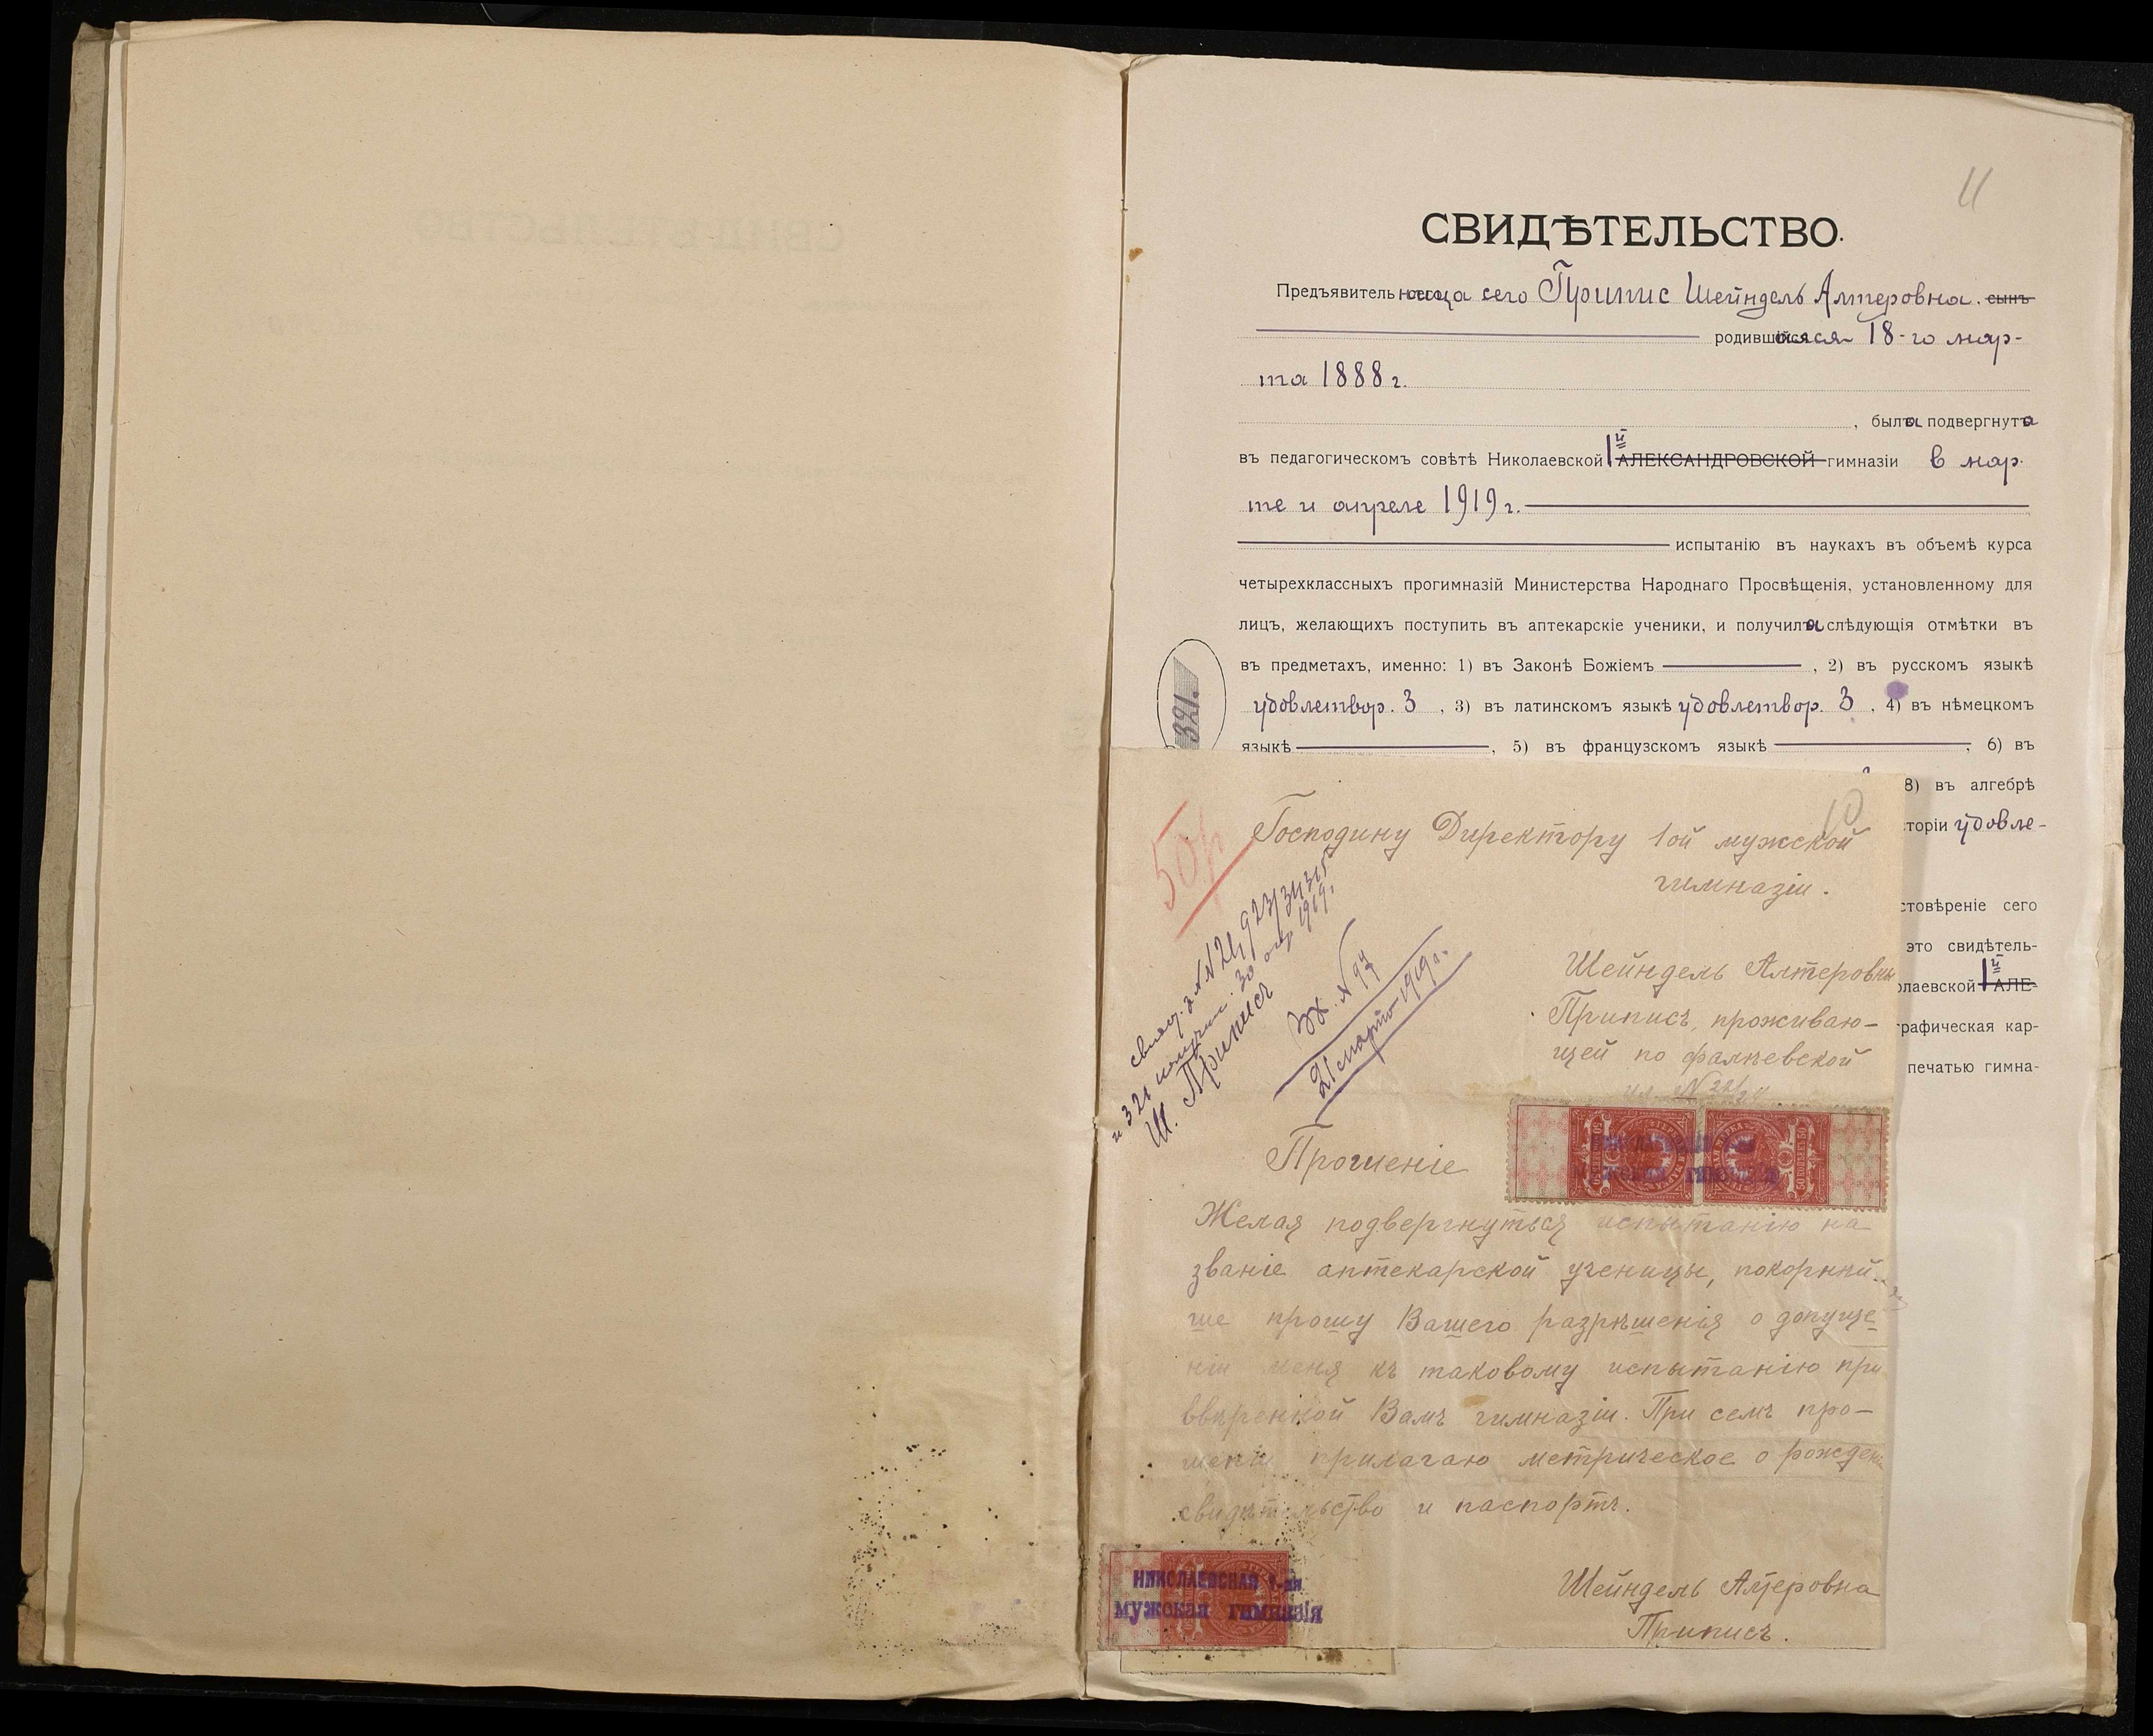 11
СВИДѢТЕЛЬСТВО.
Предъявительница сего Припис Шейндель Алтеровна. сынъ
родившаяся 18-го мар-
та 1888 г.
, была подвергнута
въ педагогическомъ совѣтѣ Николаевской 1й АЛЕКСАНДРОВСКОЙ гимназіи в мар-
те и апреле 1919 г.
испытанію въ наукахъ въ объемѣ курса
четырехклассныхъ прогимназій Министерства Народнаго Просвѣщенія, установленному для
лицъ, желающихъ поступить въ аптекарскіе ученики, и получила слѣдующія отмѣтки въ
въ предметахъ, именно: 1) въ Законѣ Божіемъ , 2) въ русскомъ языкѣ
удовлетвор. 3 , 3) въ латинскомъ языкѣ удовлетвор. 3 , 4) въ нѣмецкомъ
языкѣ , 5) въ французскомъ языкѣ , 6) въ
8) въ алгебрѣ
торіи удовле-
стовѣреніе сего
это свидѣтель-
олаевской 1й АЛЕ-
графическая кар-
печатью гимна-
321.
10
50 р
Господину Директору 1ой мужской
гимназіи.
Шейндель Алтеровны
Приписъ, проживаю-
щей по фалѣевской
ул. №
и 321 получил. 30 апр 1919 г.
Ш. Приписъ
Вх. № 97
21 марта 1919 г.
Прошеніе
Желая подвергнуться испытанію на
званіе аптекарской ученицы, покорнѣй-
ше прошу Вашего разрѣшенія о допуще-
ніи меня къ таковому испытанію при
ввѣренной Вамъ гимназіи. При семъ про-
шеніи прилагаю метрическое о рожденіи
свидѣтельство и паспортъ.
НИКОЛАЕВСКАЯ 1-ая
мужская гимназія
Шейндель Алтеровна
Приписъ.